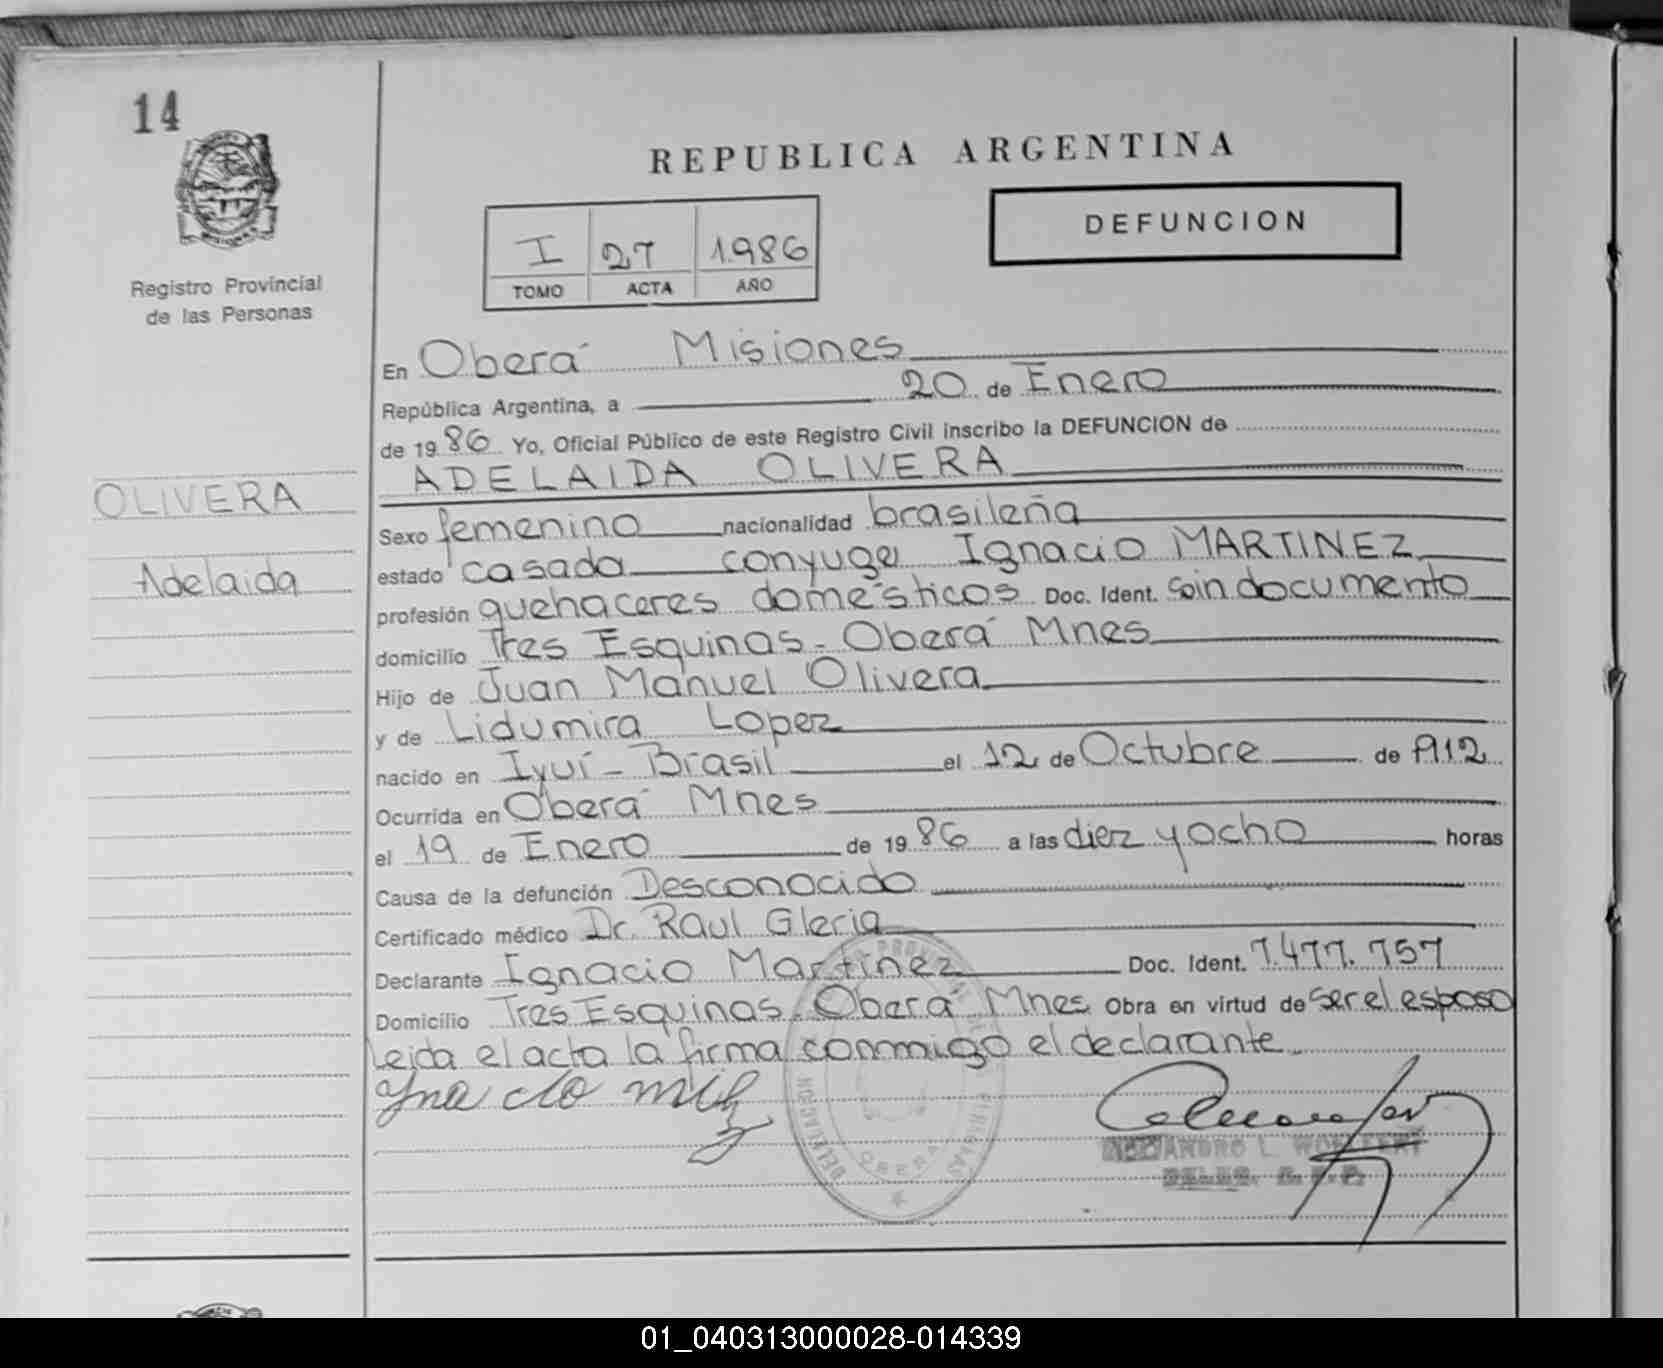 14
MISIONES
Registro Provincial
de las Personas
OLIVERA
Adelaida
REPUBLICA ARGENTINA
DEFUNCION
I 27 1986
TOMO ACTA AÑO
En Oberá Misiones
República Argentina, a 20 de Enero
de 1986 Yo, Oficial Público de este Registro Civil inscribo la DEFUNCION de
ADELAIDA OLIVERA
Sexo femenino nacionalidad brasileña
estado casada conyuge Ignacio MARTINEZ
profesión quehaceres domésticos Doc. Ident. sin documento
domicilio Tres Esquinas - Oberá Mnes
Hijo de Juan Manuel Olivera
y de Lidumira Lopez
nacido en Iyuí - Brasil el 12 de Octubre de 912
Ocurrida en Oberá Mnes
el 19 de Enero de 1986 a las diez y ocho horas
Causa de la defunción Desconocido
Certificado médico Dr. Raul Gleria
Declarante Ignacio Martinez Doc. Ident. 7.477.757
Domicilio Tres Esquinas - Oberá Mnes Obra en virtud de ser el esposo
Leida el acta la firma conmigo el declarante
DELEGACION
OBERA
01_040313000028-014339